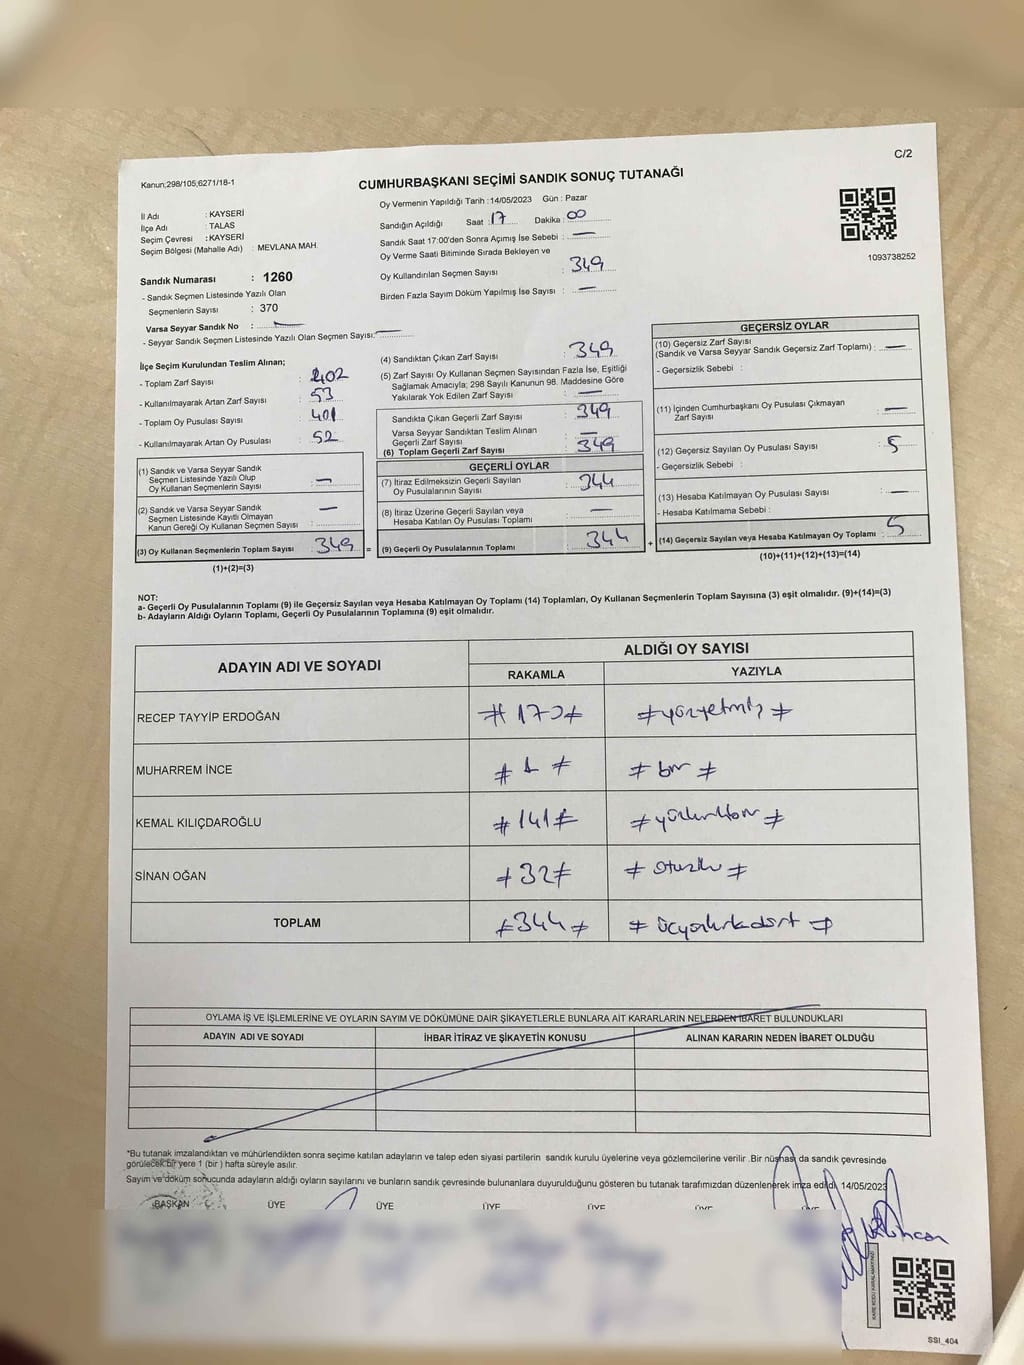 C/2
Kanun;298/105;6271/18-1
CUMHURBAŞKANI SEÇİMİ SANDIK SONUÇ TUTANAĞI
İl Adı : KAYSERİ
İlçe Adı : TALAS
Seçim Çevresi : KAYSERİ
Seçim Bölgesi (Mahalle Adı) : MEVLANA MAH.
Sandık Numarası : 1260
- Sandık Seçmen Listesinde Yazılı Olan
Seçmenlerin Sayısı : 370
Varsa Seyyar Sandık No : —
- Seyyar Sandık Seçmen Listesinde Yazılı Olan Seçmen Sayısı: —
Oy Vermenin Yapıldığı Tarih :14/05/2023 Gün : Pazar
Sandığın Açıldığı Saat : 17 Dakika : 00
Sandık Saat 17:00'den Sonra Açımış İse Sebebi : —
Oy Verme Saati Bitiminde Sırada Bekleyen ve
Oy Kullandırılan Seçmen Sayısı : 349
Birden Fazla Sayım Döküm Yapılmış İse Sayısı : —
1093738252
İlçe Seçim Kurulundan Teslim Alınan;
- Toplam Zarf Sayısı : 402
- Kullanılmayarak Artan Zarf Sayısı : 53
- Toplam Oy Pusulası Sayısı : 401
- Kullanılmayarak Artan Oy Pusulası : 52
(1) Sandık ve Varsa Seyyar Sandık
Seçmen Listesinde Yazılı Olup
Oy Kullanan Seçmenlerin Sayısı : —
(2) Sandık ve Varsa Seyyar Sandık
Seçmen Listesinde Kayıtlı Olmayan
Kanun Gereği Oy Kullanan Seçmen Sayısı : —
(3) Oy Kullanan Seçmenlerin Toplam Sayısı : 349 =
(1)+(2)=(3)
(4) Sandıktan Çıkan Zarf Sayısı : 349
(5) Zarf Sayısı Oy Kullanan Seçmen Sayısından Fazla İse, Eşitliği
Sağlamak Amacıyla; 298 Sayılı Kanunun 98. Maddesine Göre
Yakılarak Yok Edilen Zarf Sayısı : —
Sandıkta Çıkan Geçerli Zarf Sayısı : 349
Varsa Seyyar Sandıktan Teslim Alınan
Geçerli Zarf Sayısı : —
(6) Toplam Geçerli Zarf Sayısı : 349
GEÇERLİ OYLAR
(7) İtiraz Edilmeksizin Geçerli Sayılan
Oy Pusulalarının Sayısı : 344
(8) İtiraz Üzerine Geçerli Sayılan veya
Hesaba Katılan Oy Pusulası Toplamı : —
(9) Geçerli Oy Pusulalarının Toplamı : 344 +
GEÇERSİZ OYLAR
(10) Geçersiz Zarf Sayısı
(Sandık ve Varsa Seyyar Sandık Geçersiz Zarf Toplamı) : —
- Geçersizlik Sebebi :
(11) İçinden Cumhurbaşkanı Oy Pusulası Çıkmayan
Zarf Sayısı : —
(12) Geçersiz Sayılan Oy Pusulası Sayısı : 5
- Geçersizlik Sebebi :
(13) Hesaba Katılmayan Oy Pusulası Sayısı : —
- Hesaba Katılmama Sebebi :
(14) Geçersiz Sayılan veya Hesaba Katılmayan Oy Toplamı : 5
(10)+(11)+(12)+(13)=(14)
NOT:
a- Geçerli Oy Pusulalarının Toplamı (9) ile Geçersiz Sayılan veya Hesaba Katılmayan Oy Toplamı (14) Toplamları, Oy Kullanan Seçmenlerin Toplam Sayısına (3) eşit olmalıdır. (9)+(14)=(3)
b- Adayların Aldığı Oyların Toplamı, Geçerli Oy Pusulalarının Toplamına (9) eşit olmalıdır.
ADAYIN ADI VE SOYADI ALDIĞI OY SAYISI
RAKAMLA YAZIYLA
RECEP TAYYİP ERDOĞAN # 170 # # yüzyetmiş #
MUHARREM İNCE # 1 # # bir #
KEMAL KILIÇDAROĞLU # 141 # # yüzkırkbir #
SİNAN OĞAN # 32 # # otuziki #
TOPLAM # 344 # # üçyüzkırkdört #
OYLAMA İŞ VE İŞLEMLERİNE VE OYLARIN SAYIM VE DÖKÜMÜNE DAİR ŞİKAYETLERLE BUNLARA AİT KARARLARIN NELERDEN İBARET BULUNDUKLARI
ADAYIN ADI VE SOYADI İHBAR İTİRAZ VE ŞİKAYETİN KONUSU ALINAN KARARIN NEDEN İBARET OLDUĞU
*Bu tutanak imzalandıktan ve mühürlendikten sonra seçime katılan adayların ve talep eden siyasi partilerin sandık kurulu üyelerine veya gözlemcilerine verilir .Bir nüshası da sandık çevresinde
görülecek bir yere 1 (bir ) hafta süreyle asılır.
Sayım ve döküm sonucunda adayların aldığı oyların sayılarını ve bunların sandık çevresinde bulunanlara duyurulduğunu gösteren bu tutanak tarafımızdan düzenlenerek imza edildi. 14/05/2023
BAŞKAN ÜYE ÜYE ÜYE ÜYE ÜYE ÜYE
SSI_404